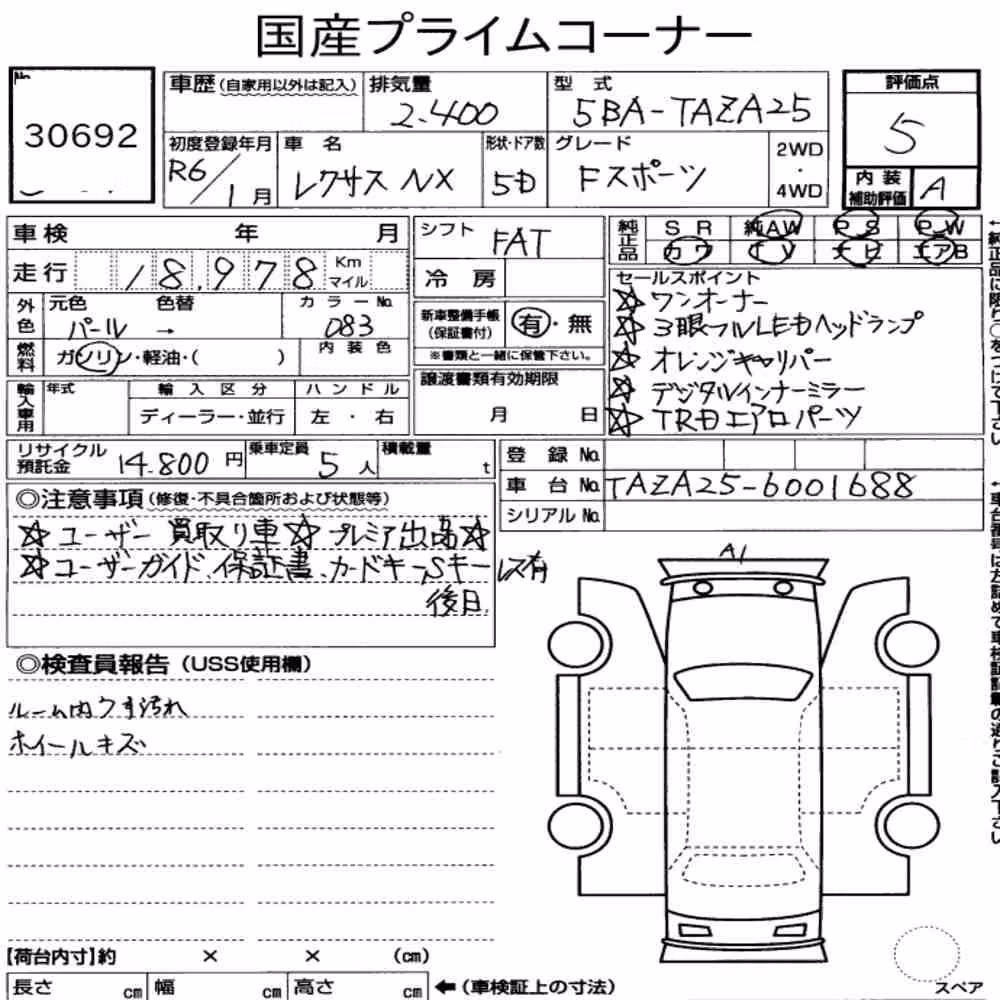 国産プライムコーナー
No. 30692
車歴 (自家用以外は記入)
排気量 2.400
型式 5BA-TAZA25
評価点 5
初度登録年月 R6/1月
車名 レクサス NX
形状・ドア数 5D
グレード Fスポーツ
2WD・4WD
内装補助評価 A
車検 年 月
走行 18,978 Km マイル
シフト FAT
冷房
純正品 SR 純AW PS PW
カワ TV ナビ エアB
外色 元色 色替 カラーNo.
パール → 083
燃料 ガソリン・軽油・( ) 内装色
新車整備手帳(保証書付) 有・無
※書類と一緒に保管下さい。
セールスポイント
☆ワンオーナー
☆3眼フルLEDヘッドランプ
☆オレンジキャリパー
☆デジタルインナーミラー
☆TRDエアロパーツ
輸入車用 年式 輸入区分 ハンドル
ディーラー・並行 左・右
譲渡書類有効期限
月 日
リサイクル預託金 14.800円
乗車定員 5人
積載量 t
登録No.
車台No. TAZA25-6001688
シリアルNo.
◎注意事項(修復・不具合箇所および状態等)
☆ユーザー買取り車☆プレミア出品☆
☆ユーザーガイド、保証書、カードキー、Sキーレス有
後日
A1
◎検査員報告(USS使用欄)
ルーム内ウす汚れ
ホイールキズ
【荷台内寸】約 × × (cm)
長さ cm 幅 cm 高さ cm ←(車検証上の寸法)
スペア
←純正品に限り○をつけて下さい